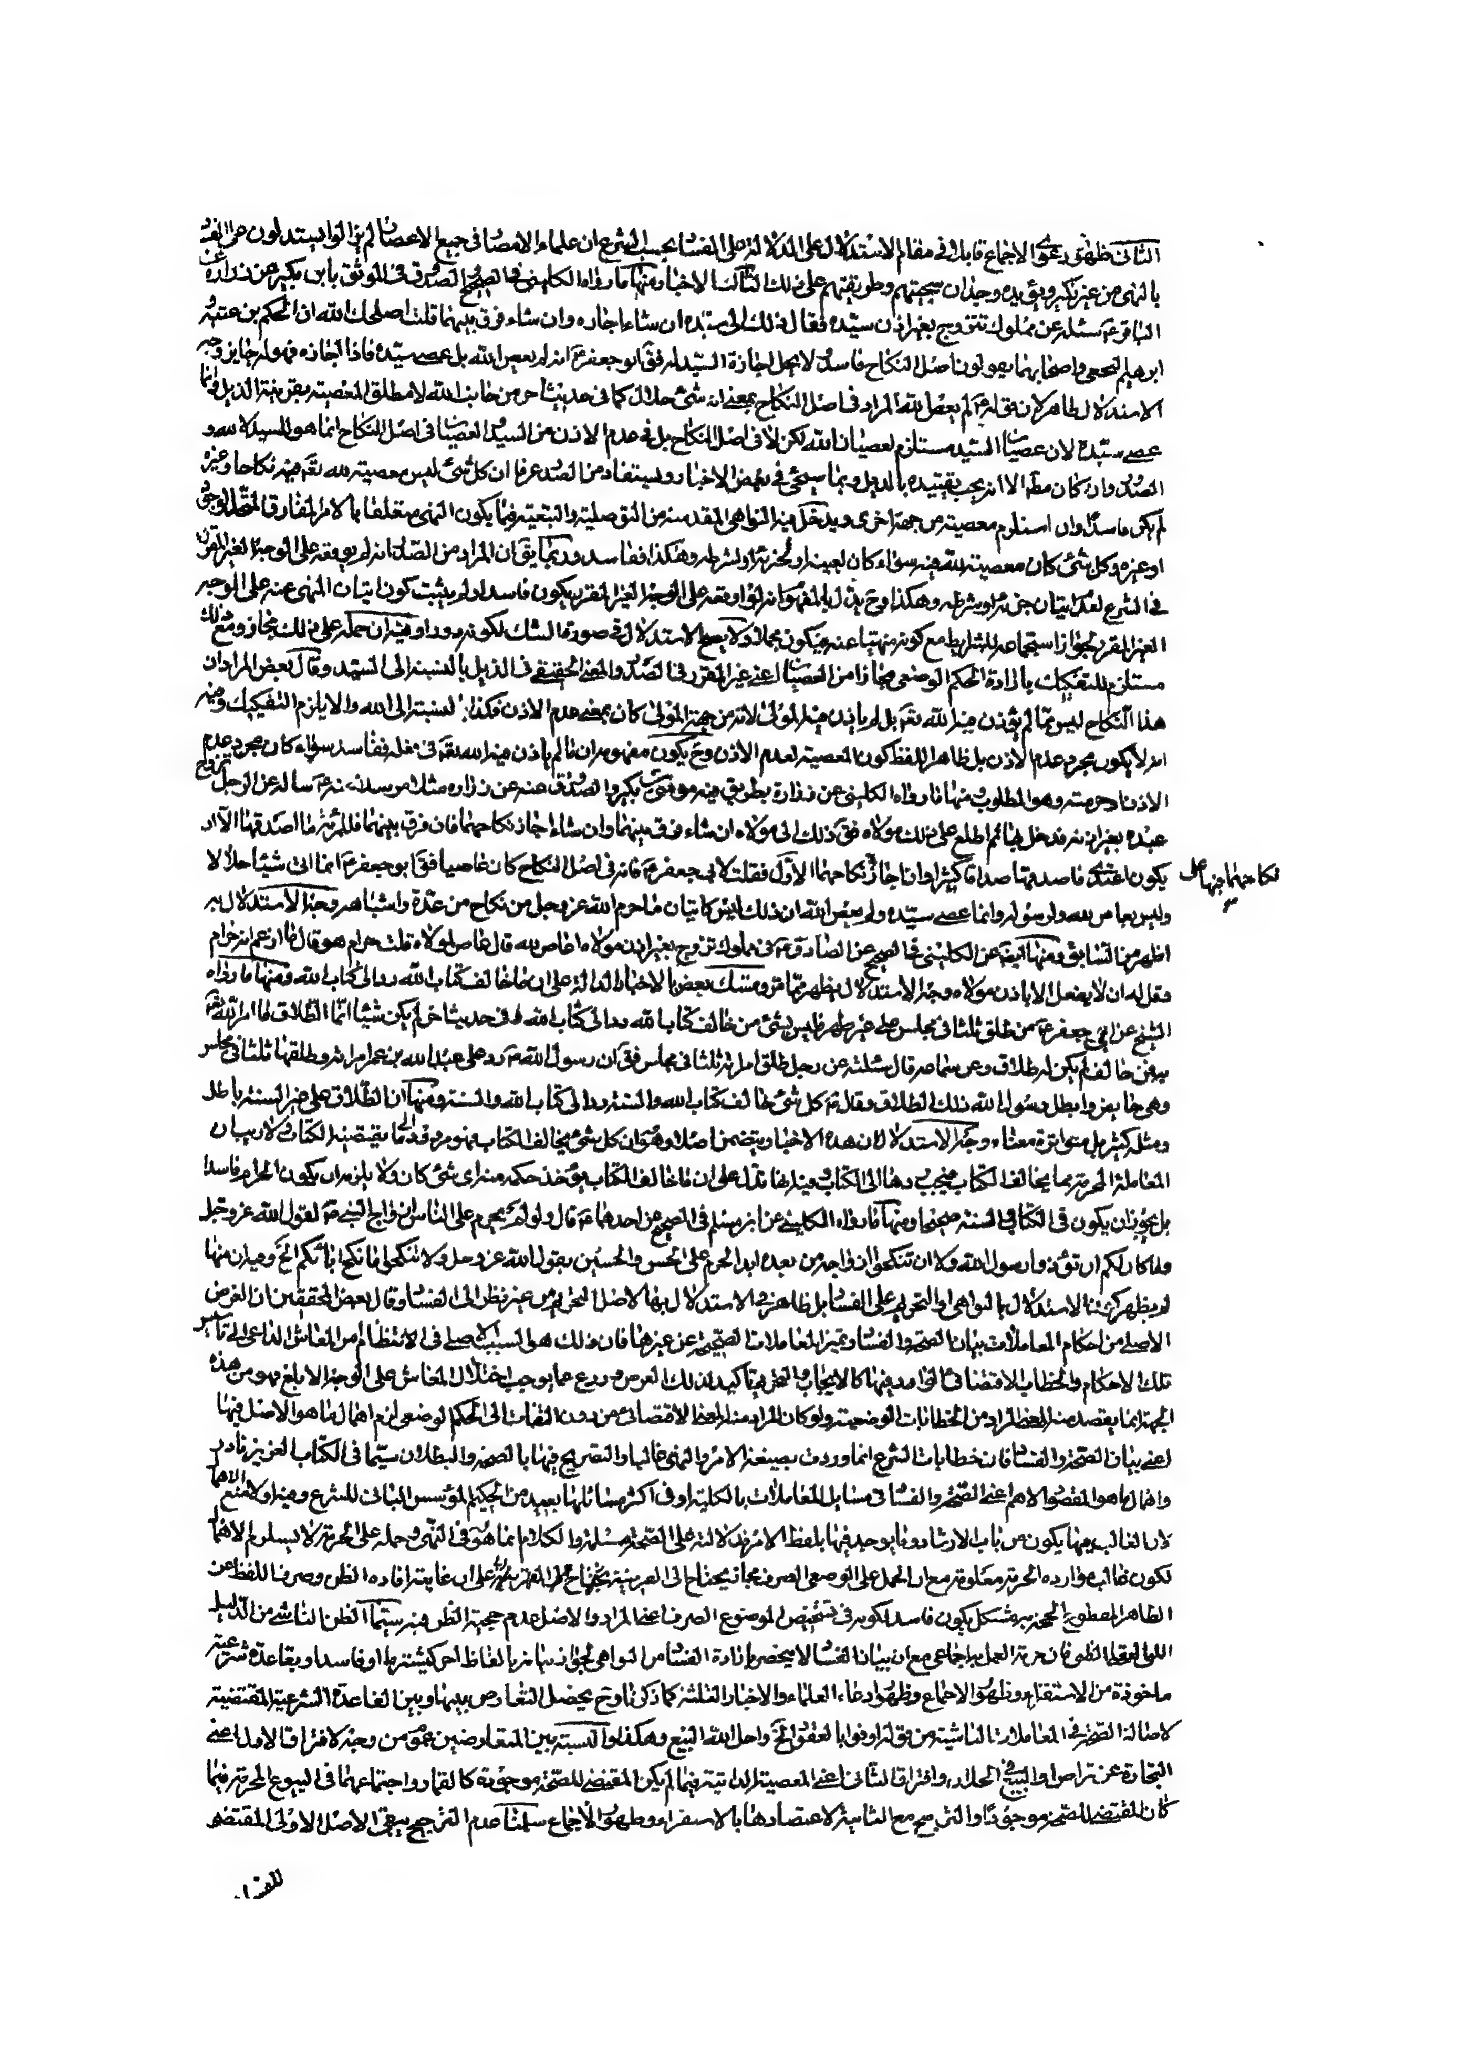 الثانى ظهور دعوى الاجماع قابلوا فى مقام الاستدلال على الدلالة على الفساد بحسب الشرع ان علماء الامصار فى جميع الاعصار لم يزالوا يستدلون على الفساد
بالنهى من غير نكير ويؤيده وجدان سجيتهم وطريقتهم على ذلك الثالث الاخبار ومنها ما رواه الكلينى فى الصحيح والصدوق فى الموثق بابن بكير عن زرارة عن
الباقر ع سئله عن مملوك تزوج بغير اذن سيده فقال ذلك الى سيده ان شاء اجازه وان شاء فرق بينهما قلت اصلحك الله ان الحكم بن عتيبه و
ابرهيم النخعى واصحابهما يقولون اصل النكاح فاسد ولا يحل اجازة السيد له فق ابو جعفر ع انه لم يعص الله بل عصى سيده فاذا اجازه فهو له جايز وجه
الاستدلال ظاهر لان قوله ع لم يعص الله المراد فى اصل النكاح بمعنى انه شئ حلال كما فى حديث اخر من جانب الله لا مطلق المعصية بقرينة الذيل وانما
عصى سيده لان عصيان السيد مستلزم لعصيان الله لكن لا فى اصل النكاح بل فى عدم الاذن من السيد والعصيان فى اصل النكاح انما هو للسيد لا لله و
الصدر وان كان مطلقا الا انه يجب تقييده بالذيل وبما سيجئ فى بعض الاخبار ويستفاد من الصدر عرفا ان كل شئ ليس معصية لله تع فيه نكاحا وغيره
لم يكن فاسدا وان استلزم معصيته من جهة اخرى ويدخل فيه النواهى المقدمية من التوصلية والتبعية وفيما يكون النهى متعلقا بالامر المفارق المتحد الوجود
او غيره وكل شئ كان معصية لله فيه سواء كان لعينه او لجزئه او لشرطه وهكذا ففاسد وربما يق ان المراد من الصدر انه لم يوقعه على الوجه الغير المقرر
فى الشرع لعدم اتيان جزئه او شرطه وهكذا وح يدل بالمفهوم انه لو اوقعه على الوجه الغير المقرر يكون فاسدا ولم يثبت كون اتيان المنهى عنه على الوجه
الغير المقرر لجواز استجماعه للشرايط مع كونه منهيا عنه فيكون مجملا ولا يصح الاستدلال فى صورة الشك لكونه مرددا وفيه ان حمله على ذلك مجاز ومع ذلك
مستلزم للتفكيك بارادة الحكم الوضعى مجازا من العصيان اعنى غير المقرر فى الصدر والمعنى الحقيقى فى الذيل بالنسبة الى السيد وقال بعض المراد ان
هذا النكاح ليس مما لم يؤذن فيه الله تع بل لم ياذن فيه المولى لانه من جهة المولى كان بمعنى عدم الاذن فكذا بالنسبة الى الله والا يلزم التفكيك وفيه
انه لا يكون مجرد عدم الاذن بل ظاهر اللفظ كون المعصية لعدم الاذن وح يكون مفهومه ان ما لم ياذن فيه الله تع فى فعله ففاسد سواء كان مجرد عدم
الاذن او حرمته وهو المطلوب ومنها ما رواه الكلينى عن زرارة بطريق فيه موسى بن بكير والصدوق عنه عن زرارة مثله مرسلا عنه ع سأله عن الرجل تزوج
عبده بغير اذنه فدخل بها ثم اطلع على ذلك مولاه فق ذلك الى مولاه ان شاء فرق بينهما وان شاء اجاز نكاحهما فان فرق بينهما فللمرئة ما اصدقها الا ان
يكون اعتدى فاصدقها صداقا كثيرا وان اجاز نكاحهما فهما على نكاحهما الاول فقلت لابى جعفر ع فانه فى اصل النكاح كان عاصيا فق ابو جعفر ع انما اتى شيئا حلالا
وليس بعاص لله ولرسوله وانما عصى سيده ولم يعص الله ان ذلك ليس كاتيان ما حرم الله عز وجل من نكاح من عدة واشباهه وجه الاستدلال به
اظهر من السابق ومنها ايضا عن الكلينى فى الصحيح عن الصادق ع فى مملوك تزوج بغير اذن مولاه اعاص لله قال عاص لمولاه قلت حرام هو قال ما ازعم انه حرام
وقل له ان لا يفعل الا باذن مولاه وجه الاستدلال يظهر مما مر ومسك بعض بالاخبار الدالة على ان ما خالف كتاب الله رد الى كتاب الله ومنها ما رواه
الشيخ عن ابى جعفر ع من طلق ثلثا فى مجلس على غير طهر فليس بشئ من خالف كتاب الله رد الى كتاب الله وفى حديث اخر لم يكن شيئا انما الطلاق لما امر الله تع
به فمن خالف لم يكن له طلاق وعن سماعه قال سئلته عن رجل طلق امرئته ثلثا فى مجلس فق ان رسول الله ص رد على عبد الله بن عمر امرئته وطلقها ثلثا فى مجلس
وهى حايض وابطل رسول الله ذلك الطلاق وقال ع كل شئ خالف كتاب الله والسنة رد الى كتاب الله والسنة ومنها ان الطلاق على غير السنة باطل
ومثله كثير بل متواترة معناء وجه الاستدلال ان هذه الاخبار يتضمن اصلا وهو ان كل شئ يخالف الكتاب فهو مردود الى ما يقتضيه الكتاب ولا ريب ان
المعاملة المحرمة مما يخالف الكتاب فيجب ردها الى الكتاب وفيه انها تدل على ان ما خالف الكتاب يؤخذ حكمه منه اى شئ كان فلا يلزم ان يكون الحرام فاسدا
بل يجوز ان يكون فى الكتاب والسنة صحيحا ومنها ما رواه الكلينى عن ابن مسلم فى الصحيح عن احدهما ع قال ولو لم يحرم على الناس ازواج النبى ص لقول الله عز وجل
وما كان لكم ان تؤذوا رسول الله ولا ان تنكحوا ازواجه من بعده ابدا لحرم على الحسن والحسين بقول الله عز وجل ولا تنكحوا ما نكح اباؤكم الخ وفيه ان منها
لم يظهر كون الاستدلال بالنواهى او التحريم على الفساد بل ظاهره الاستدلال بها لاصل التحريم من غير نظر الى الفساد وقال بعض المحققين ان الغرض
الاصلى من احكام المعاملات بيان الصحة والفساد وتميز المعاملات الصحيحة عن غيرها فان ذلك هو السبب الاصلى فى الانتظام امر المعاش الداعى الى تأسيس
تلك الاحكام والخطاب الاقتضائى الوارد فيها كالايجاب والتحريم تأكيد لذلك الغرض وردع عما يوجب اختلال المعاش على الوجه الابلغ فهو من هذه
الجهة انما يقصد منه المعنى المراد من الخطابات الوضعية ولو كان المراد منه المعنى الاقتضائى من دون التفات الى الحكم الوضعى لزم اهمال ما هو الاصل فيها
اعنى بيان الصحة والفساد فان خطابات الشرع انما وردت بصيغة الامر والنهى غالبا والتصريح فيها بالصحة والبطلان سيما فى الكتاب العزيز نادر
واهمال ما هو المقصود الاهم اعنى الصحة والفساد فى مسايل المعاملات بالكلية او فى اكثر مسائلها بعيد من الحكيم المؤسس البانى للشرع وفيه اولا منع الاهمال
لان الغالب فيها يكون من باب الارشاد وما يوجد فيها بلفظ الامر فدلالته على الصحة مسلمة والكلام انما هو فى النهى وحمله على الحرمة لا يستلزم الاهمال
لكون غالب موارده الحرمة معلومة مع ان الحمل على الوضعى الصرف مجاز يحتاج الى القرينة على ان غايته افاده الظن وصرف اللفظ عن
الظاهر المقطوع الحجة به مشكل يكون فاسدا لكونه فى تشخيص الموضوع الصرف اعنى المراد والاصل عدم حجية الظن فيه سيما الظن الناشى من الدليل
اللبى العقلى الظنى فان حرمة العمل به اجماعى مع ان بيان الفساد لا ينحصر بارادة الفساد من النواهى لجواز بيانه بالفاظ اخر كيشترط او فاسد او بقاعدة شرعية
ماخوذة من الاستقراء وظهور الاجماع وظهور ادعاء العلماء والاخبار الثلثة كما ذكرنا وح يحصل التعارض بينها وبين القاعدة الشرعية المقتضية
لاصالة الصحة فى المعاملات الناشئة من قوله اوفوا بالعقود الخ واحل الله البيع وهكذا والنسبة بين المتعارضين عموم من وجه لافتراق الاول اعنى
التجارة عن تراض والبيع فى الحلال وافتراق الثانى اعنى المعصية الذاتية فيما لم يكن المقتضى للصحة موجودة كالقمار واجتماعهما فى البيوع المحرمة فيما
كان المقتضى للصحة موجودا والترجيح مع الثانية لاعتضادها بالاستقراء وظهور الاجماع سلمنا عدم الترجيح يبقى الاصل الاولى المقتضى
للفساد